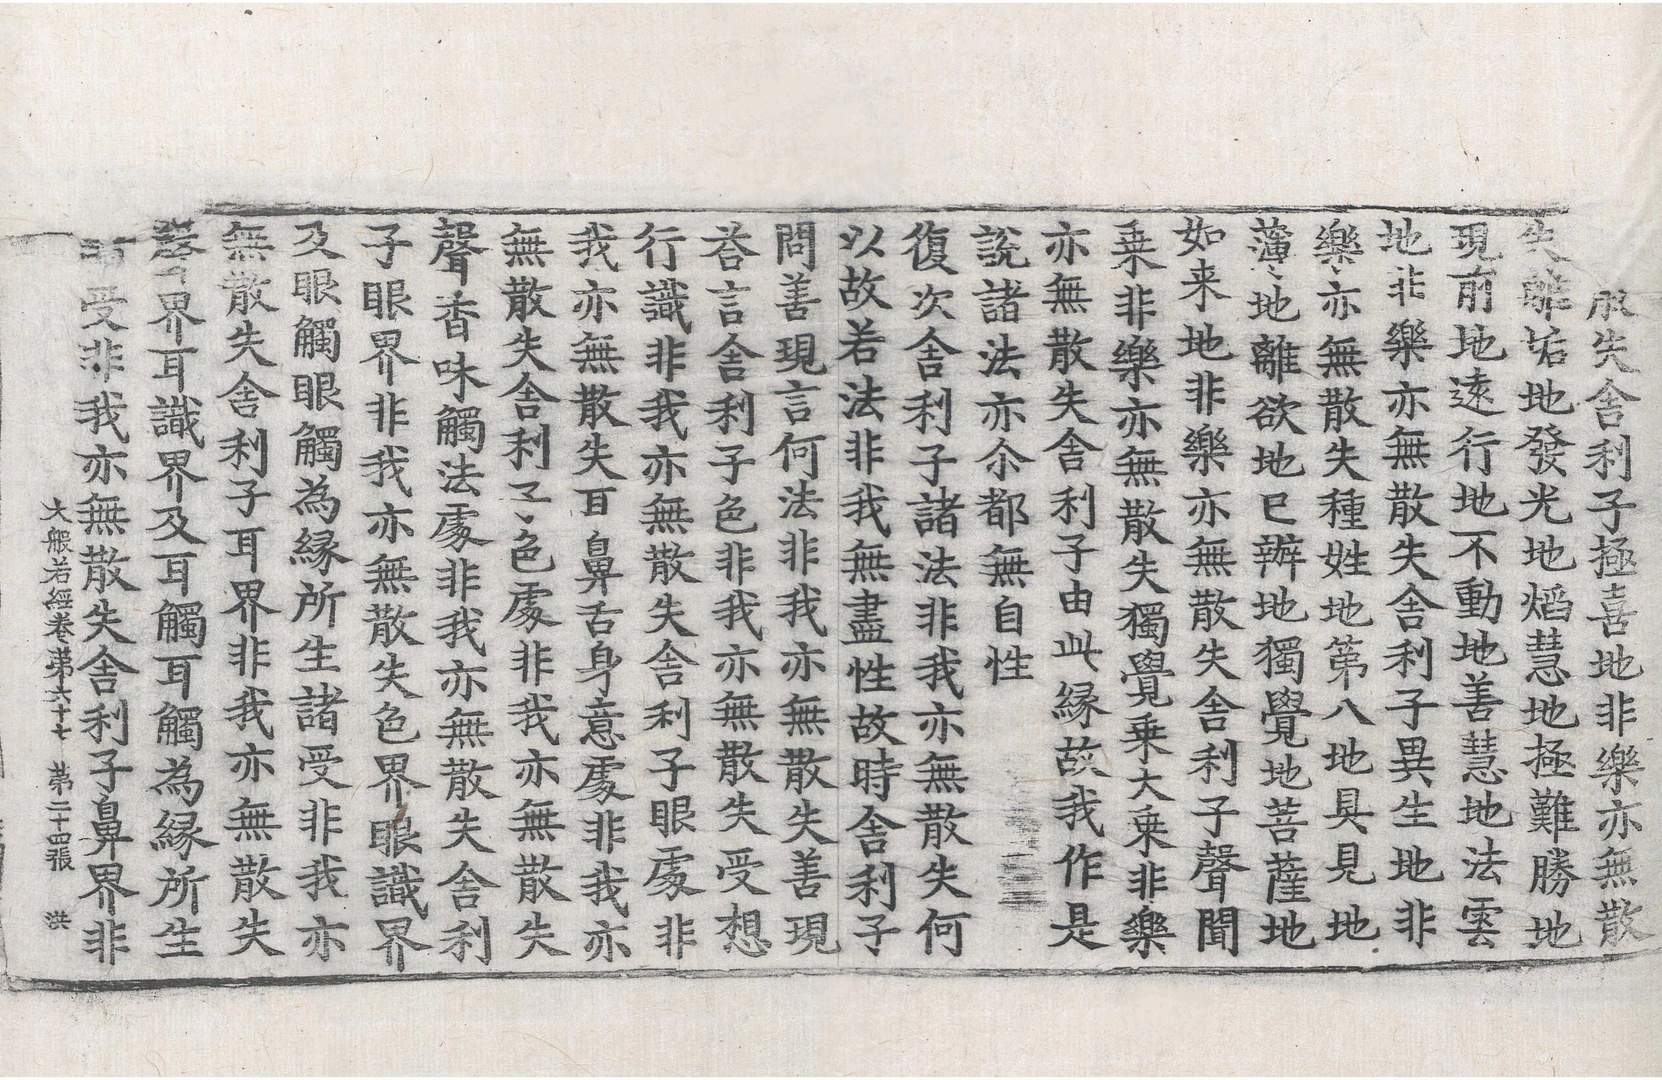 失舍利子極喜地非樂亦無散
失離垢地發光地焰慧地極難勝地
現前地遠行地不動地善慧地法雲
地非樂亦無散失舍利子異生地非
樂亦無散失種姓地第八地具見地
薄地離欲地已辦地獨覺地菩薩地
如来地非樂亦無散失舍利子聲聞
乗非樂亦無散失獨覺乗大乗非樂
亦無散失舍利子由此縁故我作是
說諸法亦尒都無自性
復次舍利子諸法非我亦無散失何
以故若法非我無盡性故時舍利子
問善現言何法非我亦無散失善現
荅言舍利子色非我亦無散失受想
行識非我亦無散失舍利子眼處非
我亦無散失耳鼻舌身意處非我亦
無散失舍利子色處非我亦無散失
聲香味觸法處非我亦無散失舍利
子眼界非我亦無散失色界眼識界
及眼觸眼觸為縁所生諸受非我亦
無散失舍利子耳界非我亦無散失
聲界耳識界及耳觸耳觸為縁所生
受非我亦無散失舍利子鼻界非
大般若經卷第六十七 第二十四張 洪